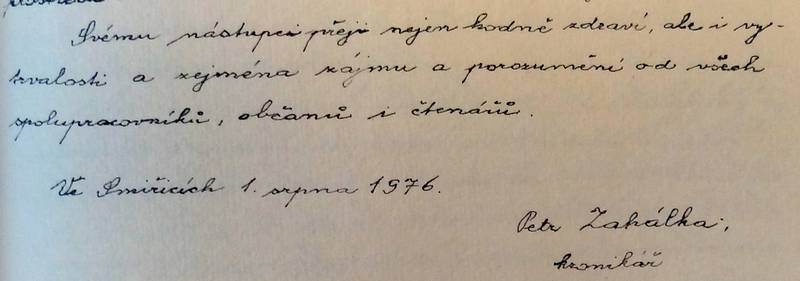 Svému nástupci přeji nejen hodně zdraví, ale i vy-
trvalosti a zejména zájmu a porozumění od všech
spolupracovníků, občanů i čtenářů.
Ve Smiřicích 1. srpna 1976.
Petr Zahálka,
kronikář